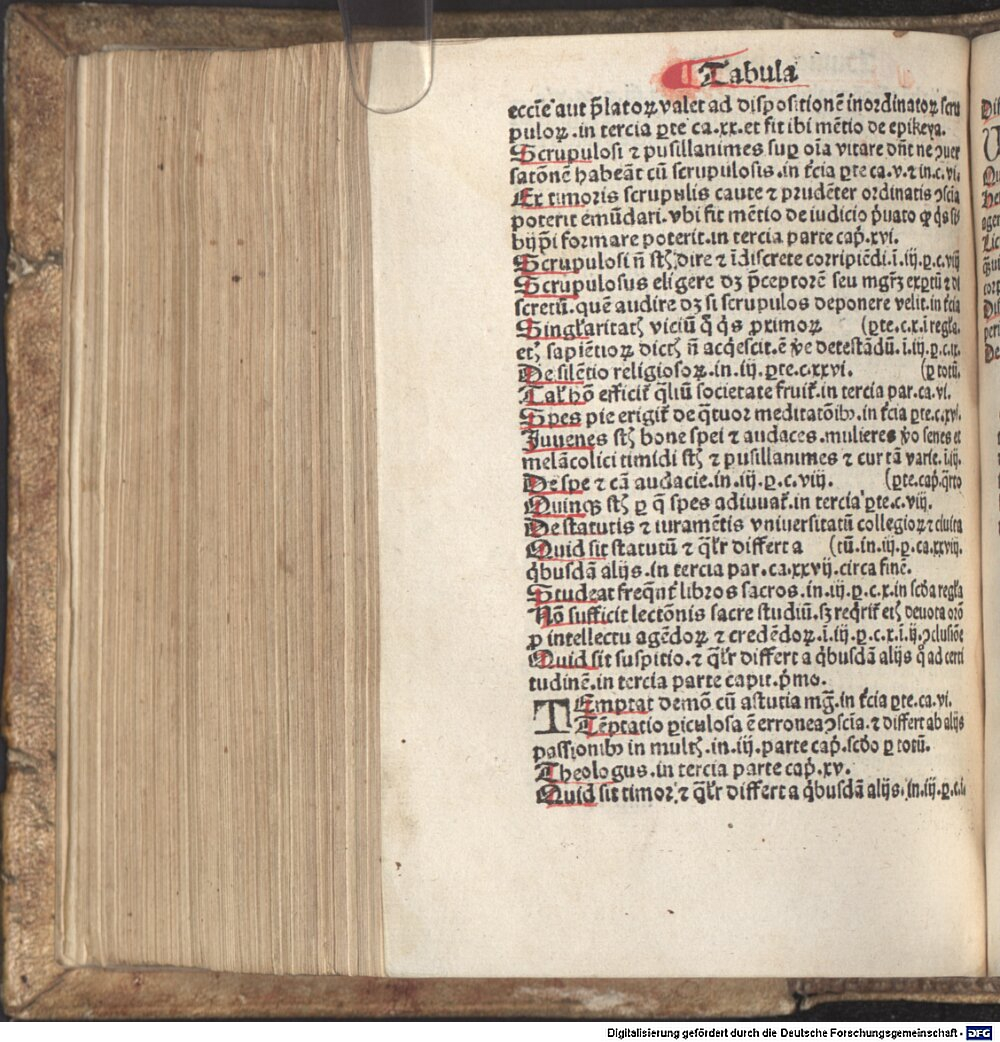 Tabula
eccīe aut p̄latoꝝ valet ad dispositionē inordinatoꝝ scru
puloꝝ .in tercia ꝑte ca.xx.et fit ibi mētio de epikeya.
Scrupulosi ⁊ pusillanimes suꝑ oīa vitare dn̄t ne ꝯuer
satōnē habeāt cū scrupulosis.in t̄cia ꝑte ca.v.⁊ in.c.vi.
Ex timoris scrupulis caute ⁊ prudēter ordinatis ꝯscīa
poterit emūdari.vbi fit mētio de iudicio p̄uato
formare poterit.in tercia parte cap̄.xvi.
Scrupulosi n̄ stꝭ dire ⁊ īdiscrete corripiēdi.ī.iij.ꝑ.c.viij
Scrupulosus eligere dꝫ p̄ceptorē seu mgr̄ꝫ exꝑtū ⁊ di
scretū.quē audire dꝫ si scrupulos deponere velit.in t̄cia
Singl̓aritatꝭ viciū q̄ q̇s ꝓximoꝝ (ꝑte.c.x.ī regl̓a.
etꝭ sapiētioꝝ dictꝭ n̄ acq̇escit.ē v̄e detestādū.ī.iij.ꝑ.c.ix.
De silētio religiosoꝝ.in.iij.ꝑte.c.xxvi. (ꝑ totū.
Tal̓ hō efficit̄ q̄liū societate fruit̄.in tercia par.ca.vi.
Spes pie erigit̄ de q̄tuor meditatōibꝰ.in t̄cia ꝑte.c.xvi.
Juuenes stꝭ bone spei ⁊ audaces.mulieres v̊o senes et
melācolici timidi stꝭ ⁊ pusillanimes ⁊ cur tā varie.ī.iij.
De spe ⁊ cā audacie.in.iij.ꝑ.c.viij. (ꝑte.cap̄.q̄rto
Quinqꝫ stꝭ ꝑ q̄ spes adiuuat̄.in tercia ꝑte.c.viij.
De statutis ⁊ iuramētis vniuersitatū collegioꝝ ⁊ ciuita
Quid sit statutū ⁊ q̄l̓r differt a (tū.in.iij.ꝑ.ca.xxviij.
q̇busdā alijs.in tercia par.ca.xxvij.circa finē.
Studeat freq̄nt̓ libros sacros.in.iij.ꝑ.c.x.in scḋa regl̓a
Nō sufficit lectōnis sacre studiū.sꝫ reqrit̄ etꝭ deuota orō
ꝓ intellectu agēdoꝝ ⁊ credēdoꝝ.ī.iij.ꝑ.c.x.ī.ij.ꝯclusiōe
Quid sit suspitio.⁊ q̄l̓r differt a q̇busdā alijs q̊ ad certi
tudinē.in tercia parte capit.p̄mo.
TEmptat demō cū astutia mḡ.in t̄cia ꝑte.ca.vi.
Tēptatio ꝑiculosa ē erronea ꝯscīa.⁊ differt ab alijs
passionibꝰ in multꝭ.in.iij.parte cap̄.scḋo ꝑ totū.
Theologus.in tercia parte cap̄.xv.
Quid sit timor ⁊ q̄l̓r differt a q̇busdā alijs.in.iij.ꝑ.c.i.
Digitalisierung gefördert durch die Deutsche Forschungsgemeinschaft - DFG